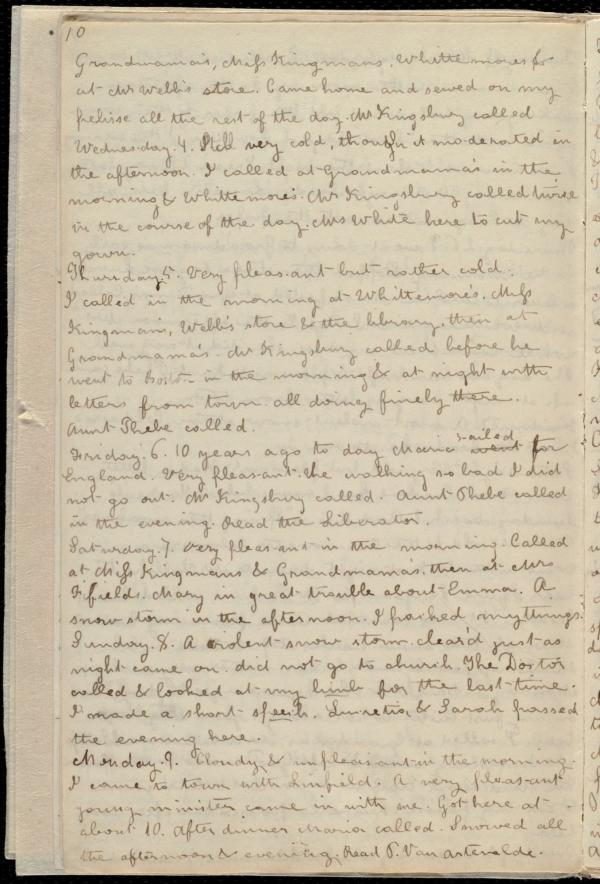 10
Grandmama's, Miss Kingmans, Whittemores &
at Mr Webb's store. Came home and sewed on my
pelisse all the rest of the day. Mr Kingsbury called
Wednesday. 4. Still very cold, though it moderated in
the afternoon. I called at Grandmama's in the
morning & Whittemore's. Mr Kingsbury called twice
in the course of the day. Mrs White here to cut my
gown.
Thursday. 5. Very pleasant but rather cold.
I called in the morning at Whittemore's. Miss
Kingman's, Webb's store & the library, then at
Grandmama's. Mr Kingsbury called before he
went to Boston in the morning & at night with
letters from town. all doing finely there.
Aunt Phebe called.
Friday. 6. 10 years ago to day Maria sailed went for
England. Very pleasant. the walking so bad I did
not go out. Mr Kingsbury called. Aunt Phebe called
in the evening. Read the Liberator.
Saturday. 7. Very pleasant in the morning. Called
at Miss Kingmans & Grandmama's, then at Mrs
Fifields. Mary in great trouble about Emma. A
snow storm in the afternoon. I packed my things.
Sunday. 8. A violent snow storm. clear'd just as
night came on. did not go to church. The Doctor
called & looked at my limb for the last time.
I made a short speech. Lucretia & Sarah passed
the evening here.
Monday. 9. Cloudy & unpleasant in the morning.
I came to town with Linfield. A very pleasant
young minister came in with me. Got here at
about 10. After dinner Maria called. Snowed all
the afternoon & evening. Read P. Van Artevelde.